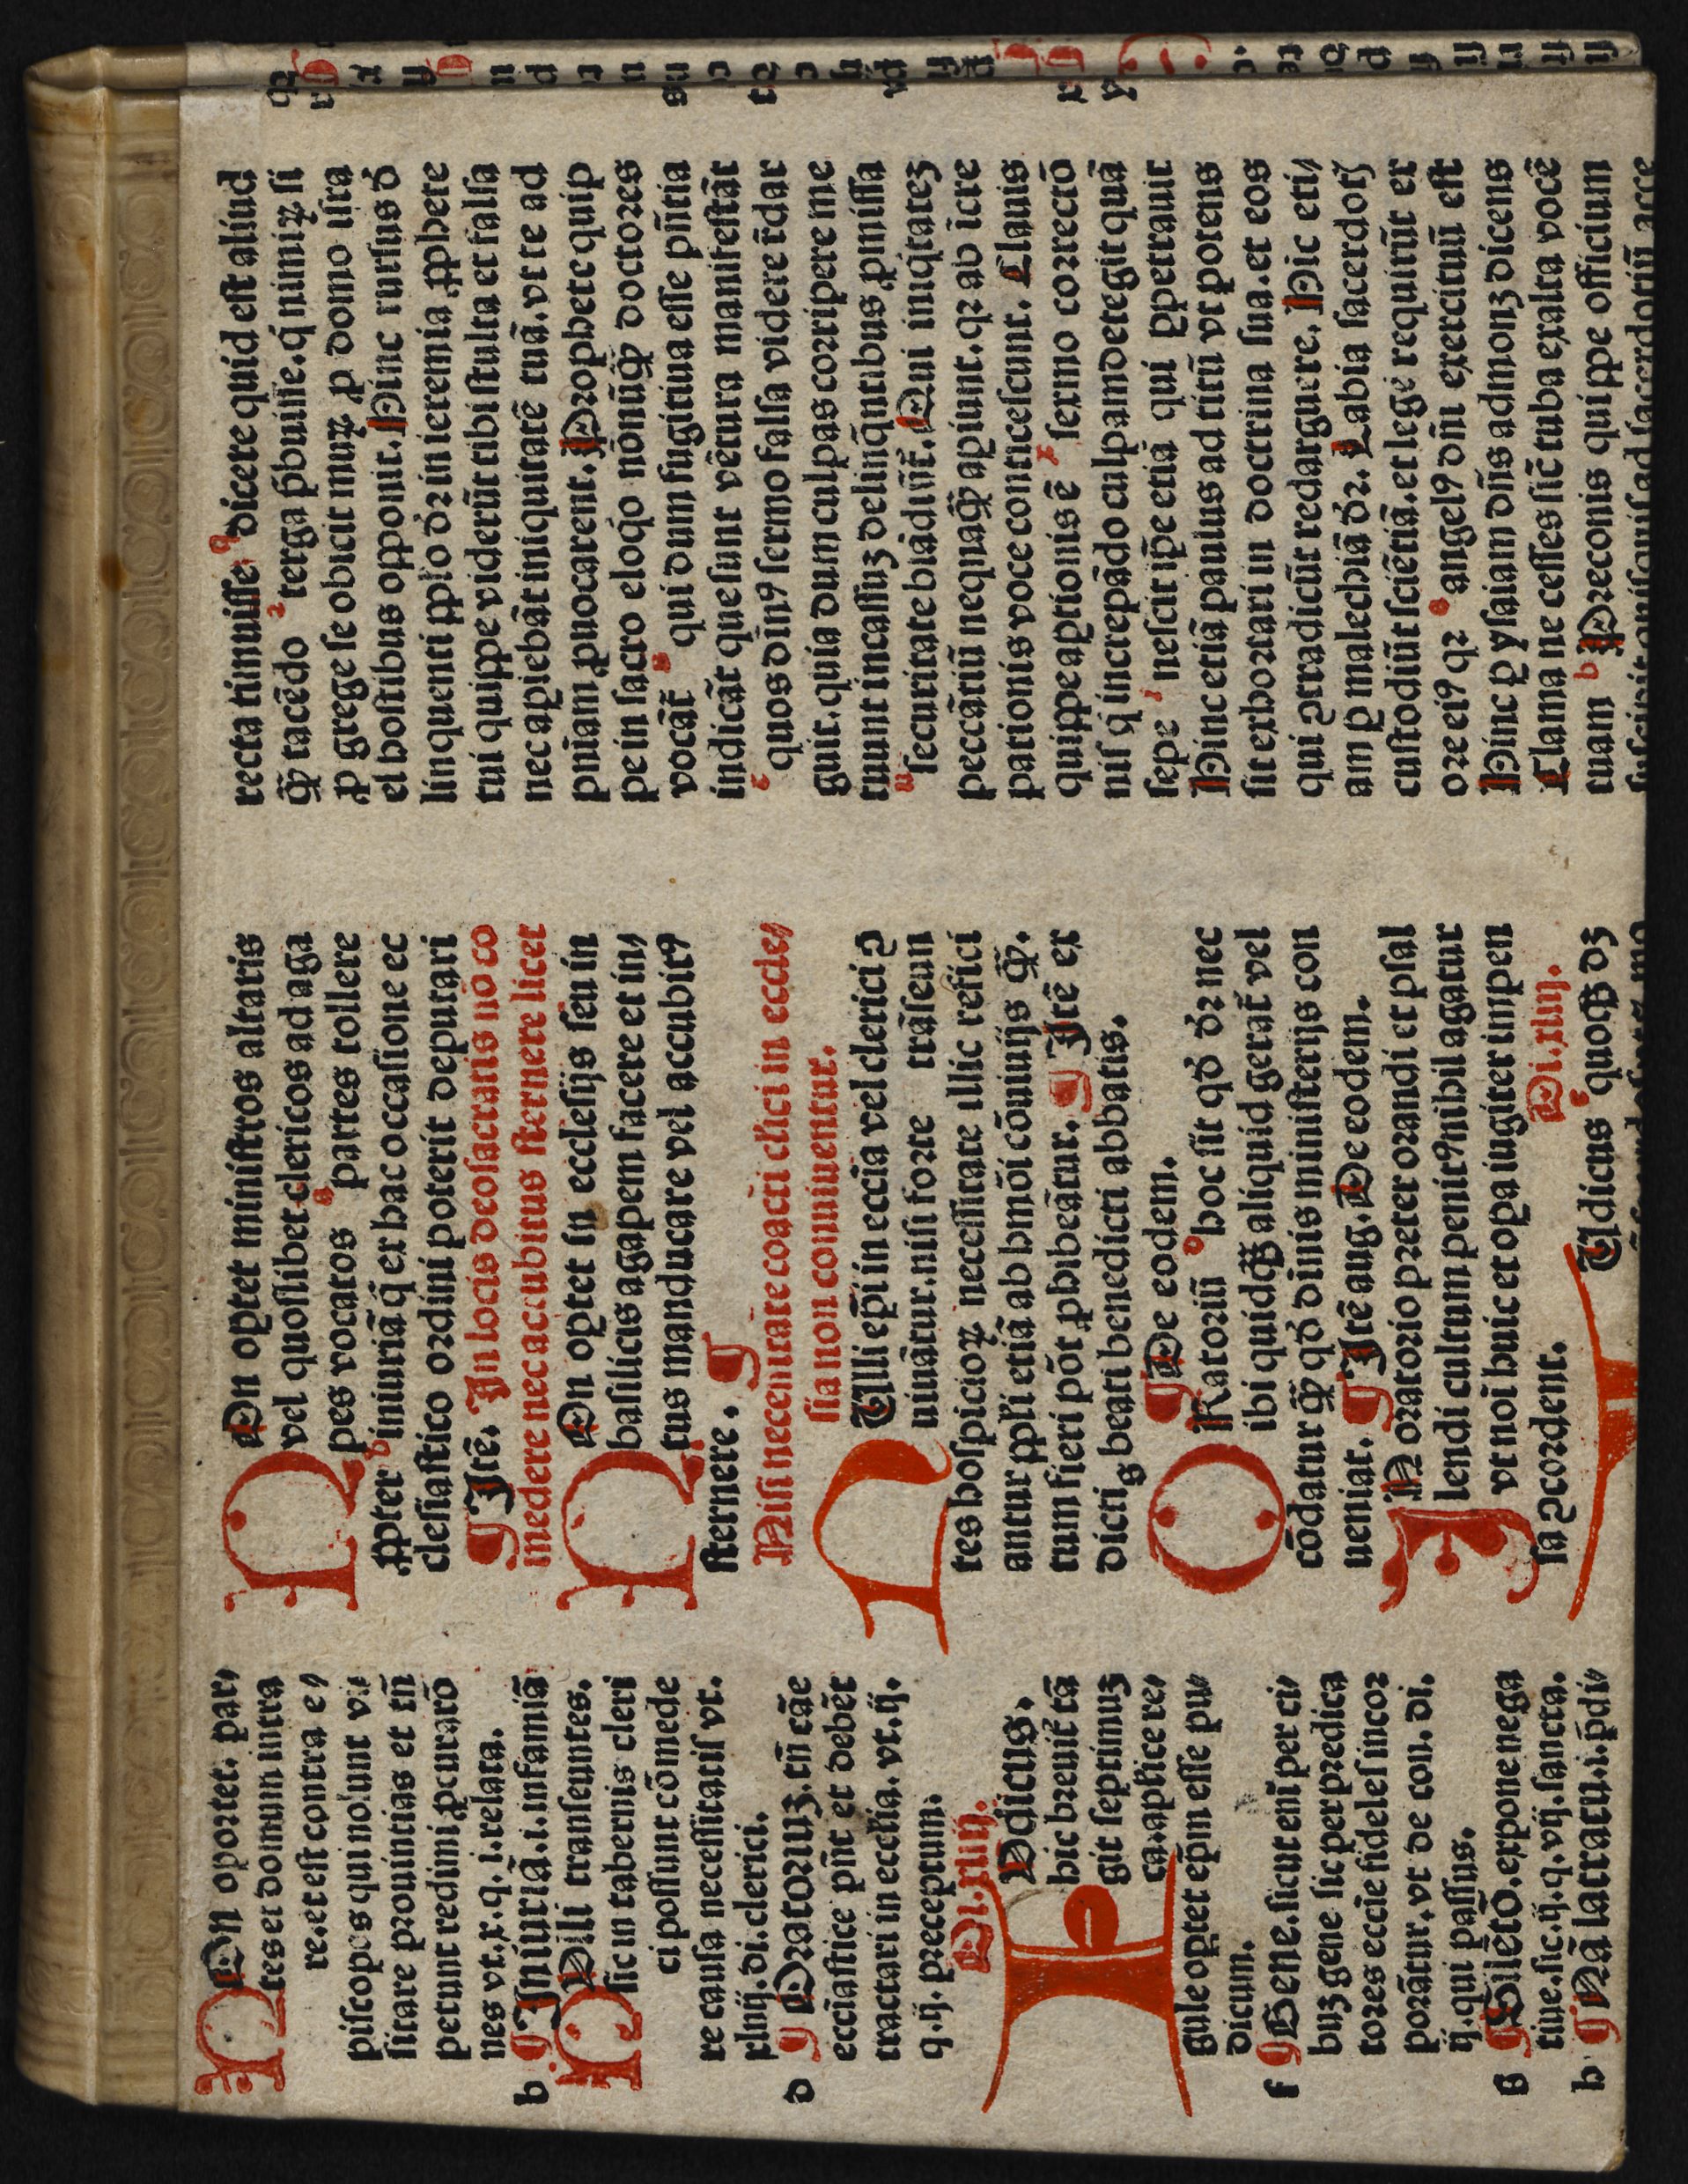 On oportet. par⸗
tes et domum intra
re. et est contra e⸗
piscopos qui nolunt vi⸗
sitare prouincias et tn̄
petunt redimi ꝓcuratō
nes vt. x. q. i. relata.
b ¶ Iniuriā. i. infamiā
Isi transeuntes.
sic in tabernis cleri
ci possunt cōmede
re causa necessitatis vt.
xliiij. di. clerici.
d ¶ Oratoriuꝫ. tn̄ cāe
ecciastice pn̄t et debēt
tractari in ecclīa. vt. ij.
q. ij. preceptum.
Di. xliij.
Udicus.
hic breuit̄ tā
git septimuꝫ
ca. aplīce re⸗
gule oportet ep̄m esse pu⸗
dicum.
f ¶ Gene. sicut eni ꝑ per ci⸗
buꝫ gene sic per predica
tores eccīe fideles incor
porātur. vt de con. di.
ij. qui passus.
g ¶ Silētō. expone nega
tiue. sic. ij. q. vij. sancta.
h ¶ Nā latratu. i. p̄di⸗
On oꝑtet ministros altaris
vel quoslibet clericos ad aga
pes vocatos partes tollere
ꝓpter iniuriā q̄ ex hac occasione ec
clesiastico ordini poterit deputari
¶ Itē. In locis deo sacratis nō co
medere nec accubitus sternere licet
On oꝑtet in ecclesijs seu in
basilicis agapem facere et in⸗
tus manducare vel accubitꝰ
sternere. ¶
Nisi necessitate coacti clīci in eccle⸗
sia non conuiuentur.
Ulli ep̄i in eccīa vel clerici ꝯ
uiuātur. nisi forte trāseun
tes hospicioꝝ necessitate illic refici
antur ppl̄i etiā ab hmōi cōuiuijs ꝙ̄.
tum fieri pōt ꝓhibeātur. ¶ Itē ex
dictis beati benedicti abbatis.
¶ De eodem.
Ratoriū hoc sit qd̄ dr nec
ibi quidqꝫ aliquid gerat̄ vel
cōdatur ꝙ̄ qd̄ diuinis ministerijs con
ueniat. ¶ Itē aug. De eodem.
N oratorio preter orandi et psal
lendi cultum penitꝰ nihil agatur
vt noī huic et oꝑa iugiter impen
sa ꝯcordent. Di. xliij.
Udicus quoqꝫ dꝫ
recta timuisse dicere quid est aliud
ꝙ̄ tacēdo terga p̄buisse. q̄ nimiꝝ si
ꝓ grege se obicit murꝝ ꝓ domo isra
el hostibus opponit. Hinc rursus d̄
linquenti ppl̄o dr in ieremia ꝓphete
tui quippe viderūt tibi stulta et falsa
nec apiebāt iniquitatē tuā. vt te ad
pn̄iam ꝓuocarent. Prophete quip
pe in sacro eloq̇o nōnūꝙ̄ doctores
vocāt̄ qui dum fugitiua esse pn̄tia
indicāt que sunt vētura manifestāt
quos diuinꝰ sermo falsa videre r̄dar
guit. quia dum culpas corripere me
tuunt incassuꝫ delinq̄ntibus ꝓmissa
securitate blādiūt̄. Qui iniq̇tateꝫ
peccātiū nequaꝙ̄ apiunt. qr ab īcre
pationis voce conticescunt. Clauis
quippe aꝑtionis ē sermo correctō
nis q̇ increpādo culpam detegit quā
sepe nescit ip̄e etiā qui ꝑpetrauit
Hinc etiā paulus ad titū vt potens
sit exhortari in doctrina sua. et eos
qui ꝯtradicūt redarguere. Hic eti⸗
am ꝑ malechiā dr. Labia sacerdotꝭ
custodiūt sciētiā. et legē requirūt ex
ore eiꝰ qr angelꝰ dn̄i exercituū est
Hinc ꝑ ysaiam dn̄s admonꝫ dicens
Clama ne cesses sic̄ tuba exalta vocē
tuam Preconis quippe officium
suscipit quisquis ad sacerdotiū acce